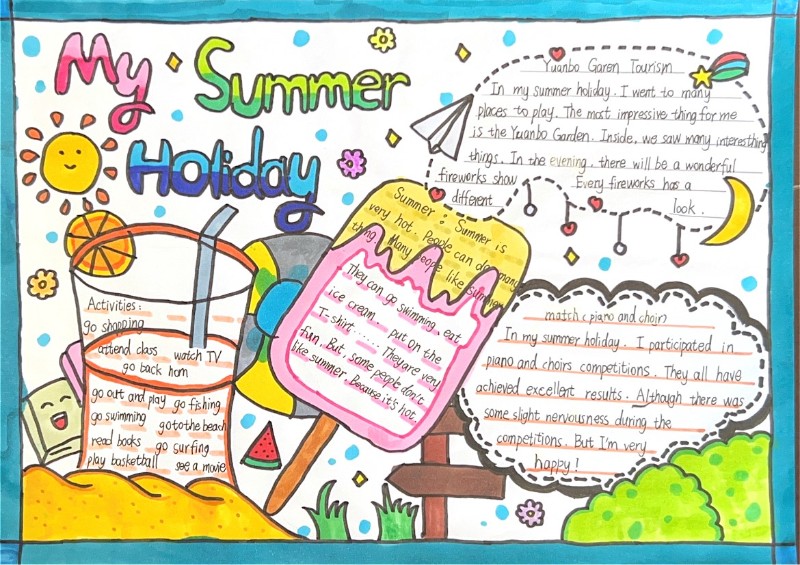 My Summer
Holiday
Yuanbo Garen Tourism
In my summer holiday. I went to many
places to play. The most impressive thing for me
is the Yuanbo Garden. Inside, we saw many interesthing
things. In the evening, there will be a wonderful
fireworks show Every fireworks has a
different look.
Summer : Summer is
very hot. People can do many
thing. Many people like summer
They can go swimming, eat
ice cream put on the
T-shirt...... They are very
fun. But, some people don't
like summer. Because it's hot.
Activities:
go shopping
attend class watch TV
go back hom
go out and play go fishing
go swimming go to the beach
read books go surfing
play basketball see a movie
match (piano and choir)
In my summer holiday. I participated in
piano and choirs competitions. They all have
achieved excellent results. Although there was
some slight nervousness during the
competitions. But I'm very
happy!